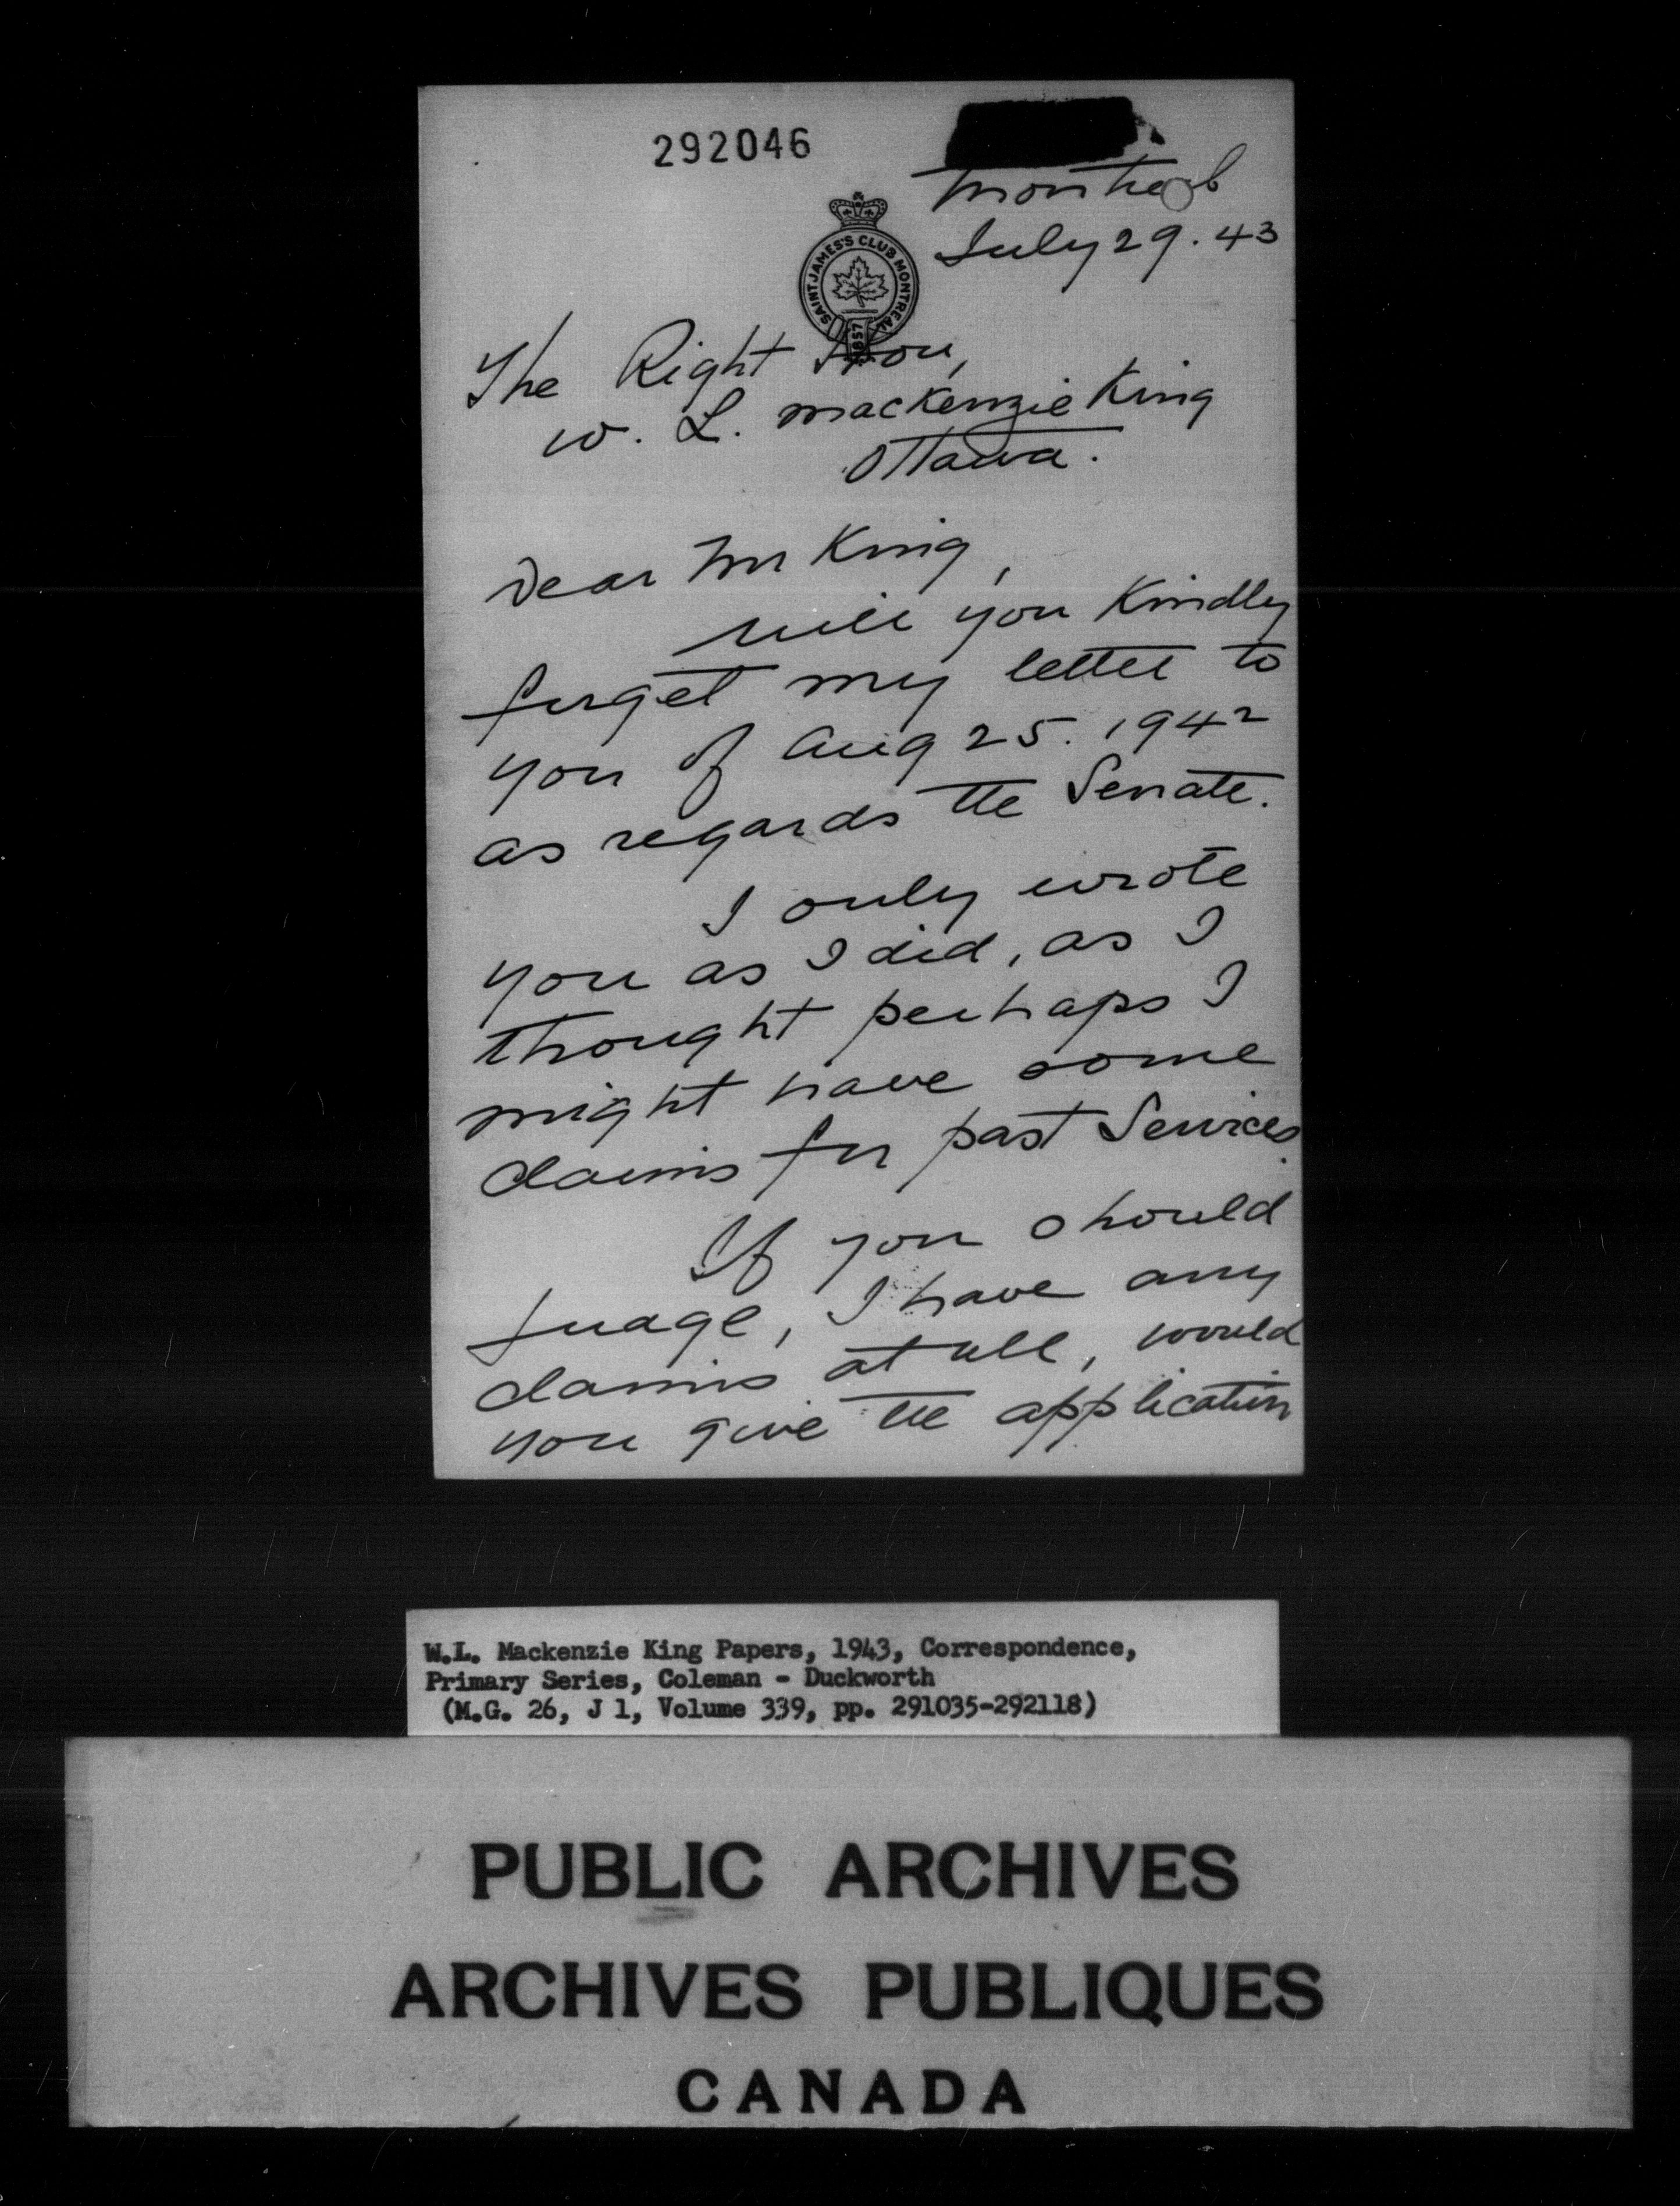 292046
Montreal
July 29. 43
SAINT JAMES'S CLUB MONTREAL
1857
The Right Hon,
W. L. Mackenzie King
Ottawa.
Dear Mr King,
Will you kindly
forget my letter to
you of Aug 25. 1942
as regards the Senate.
I only wrote
you as I did, as I
thought perhaps I
might have some
claims for past Services.
If you should
judge, I have any
claims at all, would
you give the application
W.L. Mackenzie King Papers, 1943, Correspondence,
Primary Series, Coleman - Duckworth
(M.G. 26, J 1, Volume 339, pp. 291035-292118)
PUBLIC ARCHIVES
ARCHIVES PUBLIQUES
CANADA